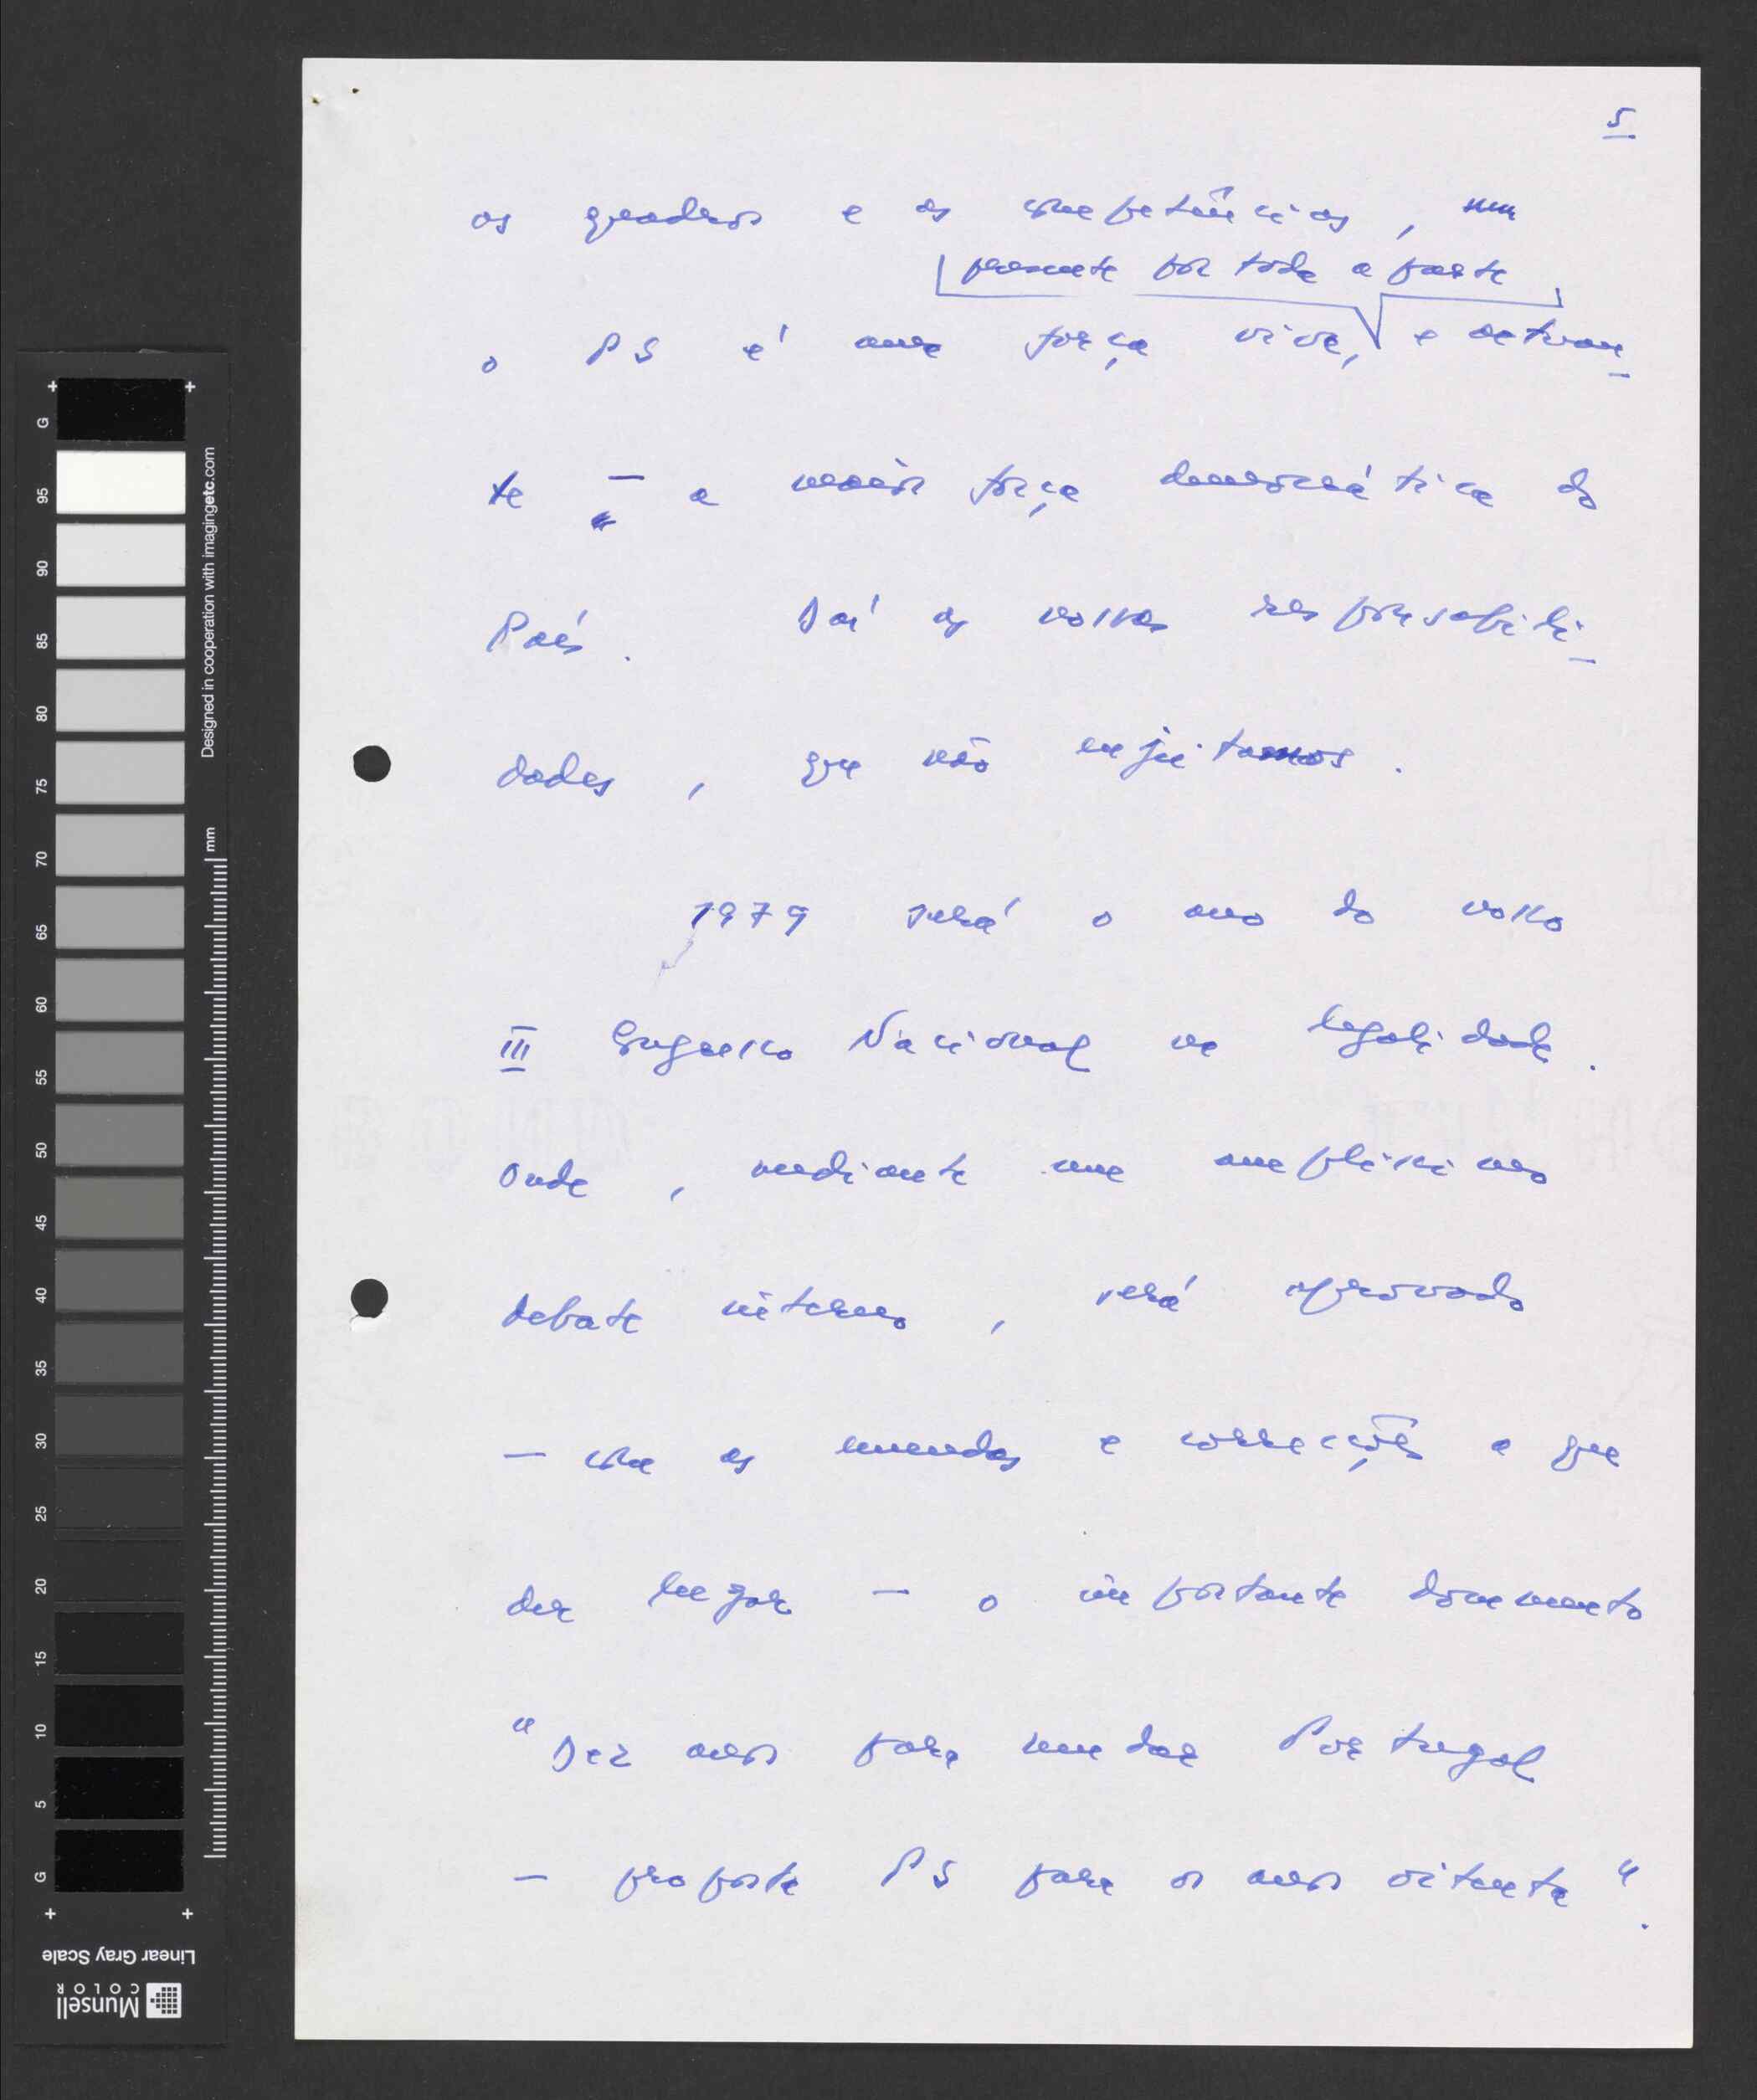 5
os quadros e as competências,
presente por toda a parte
o PS é uma força viva, e actuan-
te — a maior força democrática do
País. Daí as nossas responsabili-
dades, que não enjeitamos.
1979 será o ano do nosso
III Congresso Nacional na legalidade.
Onde, mediante um amplíssimo
debate interno, será aprovado
— com as emendas e correcções a que
der lugar — o importante documento
"Dez anos para mudar Portugal
— proposta PS para os anos oitenta".
G
95
90
85
80
75
70
65
60
55
50
45
40
35
30
25
20
15
10
5
G
Designed in cooperation with imagingetc.com
mm
Linear Gray Scale
Munsell
COLOR